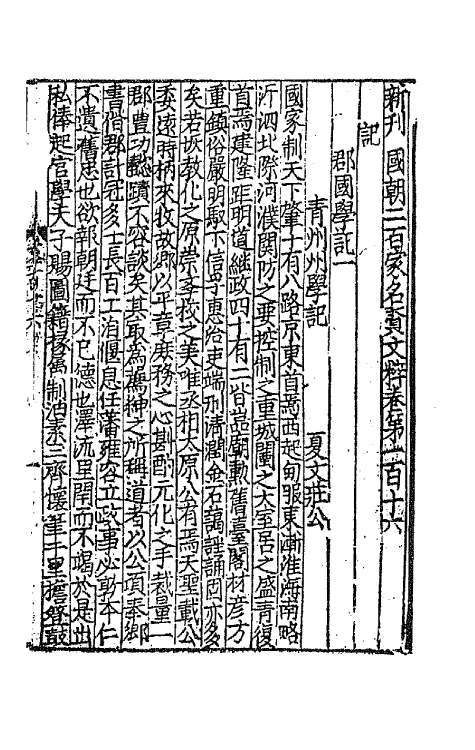 新刊國朝二百家名賢文粹卷第一百十六
記
郡國學記一
青州州學記 夏文莊公
國家制天下肇十有八路京東首焉西起甸服東漸淮海南略
沂泗北際河濮關防之要控制之重城闉之大室居之盛青復
首焉建隆距明道繼政四十有二皆嵒廟勲舊臺閣材彥方
重鎮俗嚴明馭下信孚惠洽吏端刑清潤金石藹謡誦固亦多
矣若圾教化之原崇庠校之美唯丞相太原公有焉天聖載公
委遠時柄來牧故郡以平章庶務之心斟酌元化之手裁量一
郡豊功懿蹟不容談矣其取為搢紳之所稱道者以公頃奉鄉
書偕郡計冠多士長百工洎偃息任藩雍容立政事必敦本仁
不遺舊忠也欲報朝廷而不已德也澤流里閈而不竭於是出
私俸起官學天子賜圖籍 制沺素三齊懷筆千里擔簦鼓